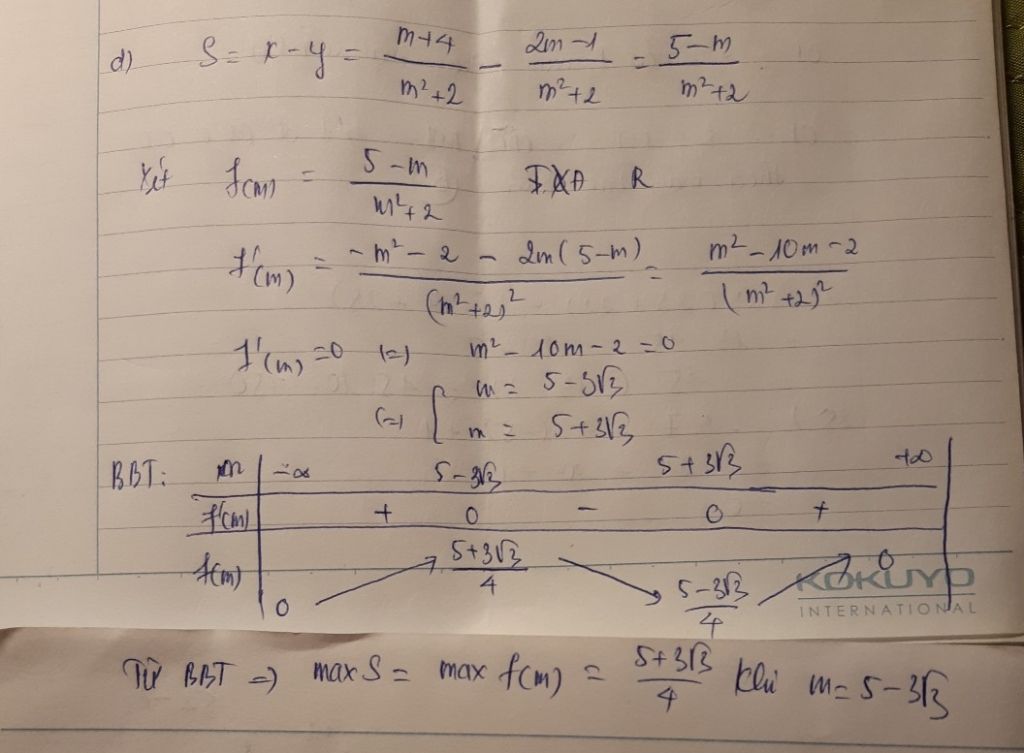 d) S = x - y = \frac{m+4}{m²+2} - \frac{2m-1}{m²+2} = \frac{5-m}{m²+2}
Xét f(m) = \frac{5-m}{m²+2} TXĐ R
f'(m) = \frac{-m²-2-2m(5-m)}{(m²+2)²} = \frac{m²-10m-2}{(m²+2)²}
f'(m)=0 (=) m²-10m-2=0
(=) [ m = 5-3√3
m = 5+3√3
BBT: m -∞ 5-3√3 5+3√3 +∞
f'(m) + 0 - 0 +
f(m) 0 \frac{5+3√3}{4} \frac{5-3√3}{4} 0
KOKUYO
INTERNATIONAL
Từ BBT => max S = max f(m) = \frac{5+3√3}{4} khi m = 5-3√3